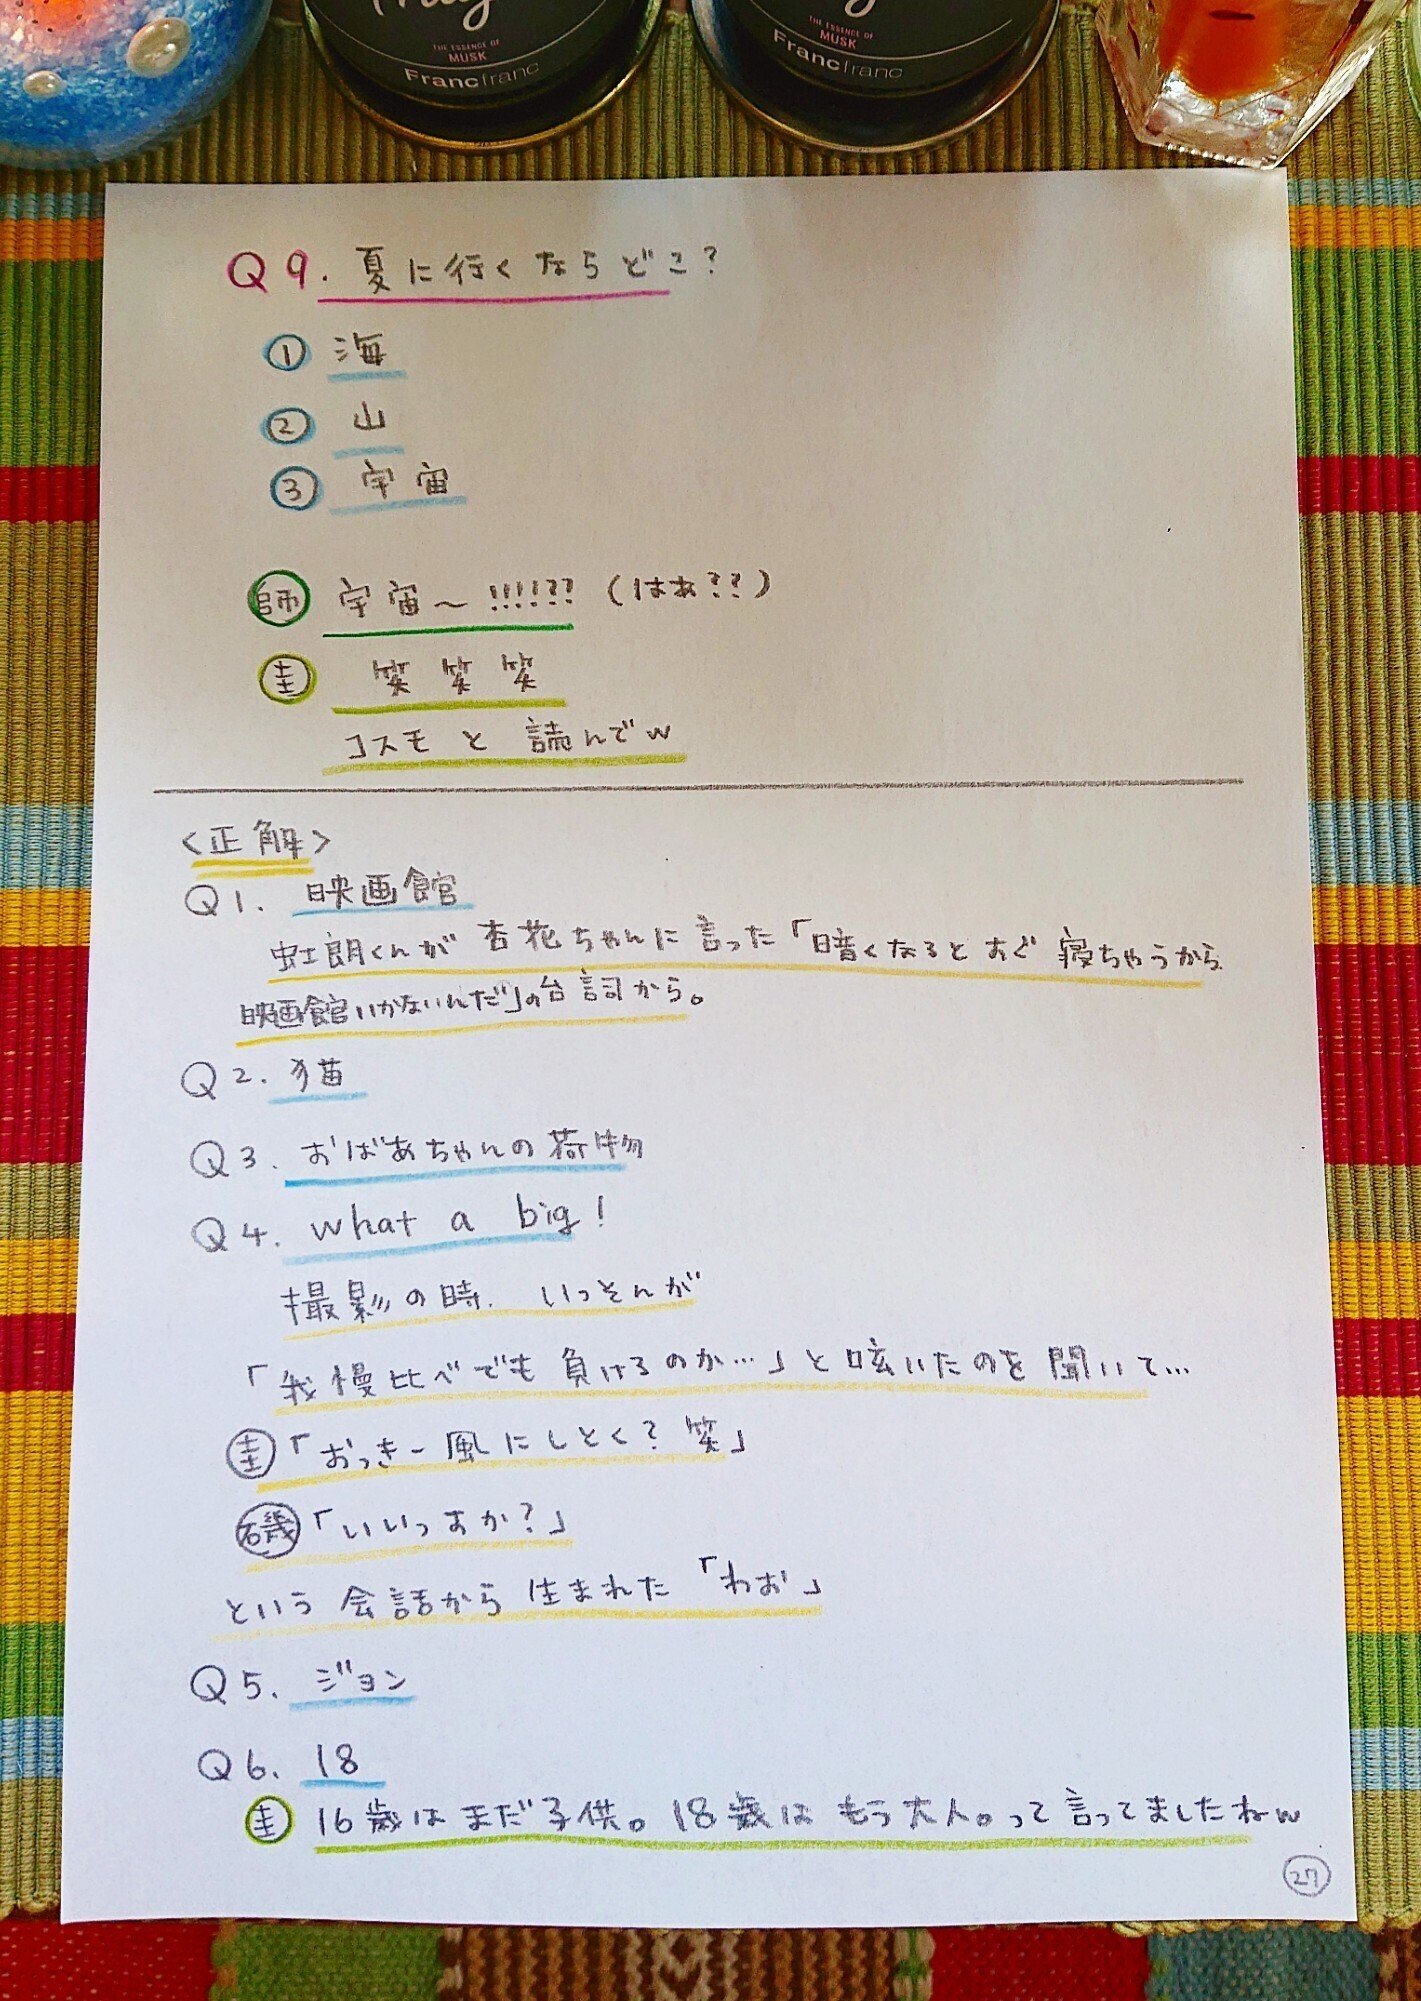 THE ESSENCE OF
MUSK
Francfranc
THE ESSENCE OF
MUSK
Francfranc
Q9. 夏に行くならどこ?
① 海
② 山
③ 宇宙
師 宇宙~!!!!?? (はあ??)
圭 笑笑笑
コスモと読んでw
<正解>
Q1. 映画館
虹朗くんが杏花ちゃんに言った「暗くなるとすぐ寝ちゃうから
映画館いかないんだ」の台詞から。
Q2. 猫
Q3. おばあちゃんの荷物
Q4. what a big!
撮影の時、いっそんが
「我慢比べでも負けるのか…」と呟いたのを聞いて…
圭「おっきー風にしとく?笑」
磯「いいっすか?」
という会話から生まれた「わお」
Q5. ジョン
Q6. 18
圭 16歳はまだ子供。18歳はもう大人。って言ってましたねw
27